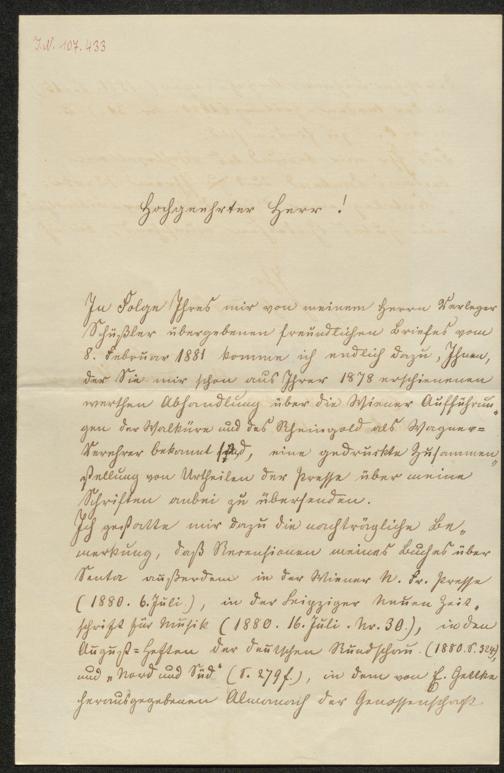 I.N. 107.433
Hochgeehrter Herr!
In Folge Ihres mir von meinem Herrn Verleger
Schüßler übergebenen freundlichen Briefes vom
8. Februar 1881 komme ich endlich dazu, Ihnen,
der Sie mir schon aus Ihrer 1878 erschienenen
werthen Abhandlung über die Wiener Aufführun-
gen der Walküre und des Rheingold als Wagner-
Verehrer bekannt sind, eine gedruckte Zusammen-
stellung von Urtheilen der Presse über meine
Schriften anbei zu übersenden.
Ich gestatte mir dazu die nachträgliche Be-
merkung, daß Recensionen meines Buches über
Senta außerdem in der Wiener N. Fr. Presse
(1880. 6. Juli), in der Leipziger Neuen Zeit-
schrift für Musik (1880. 16. Juli. Nr. 30.), in den
August-Heften der deutschen Rundschau (1880. S. 324)
und „Nord und Süd" (S. 279 f.), in dem von E. Gettke
herausgegebenen Almanach der Genossenschaft